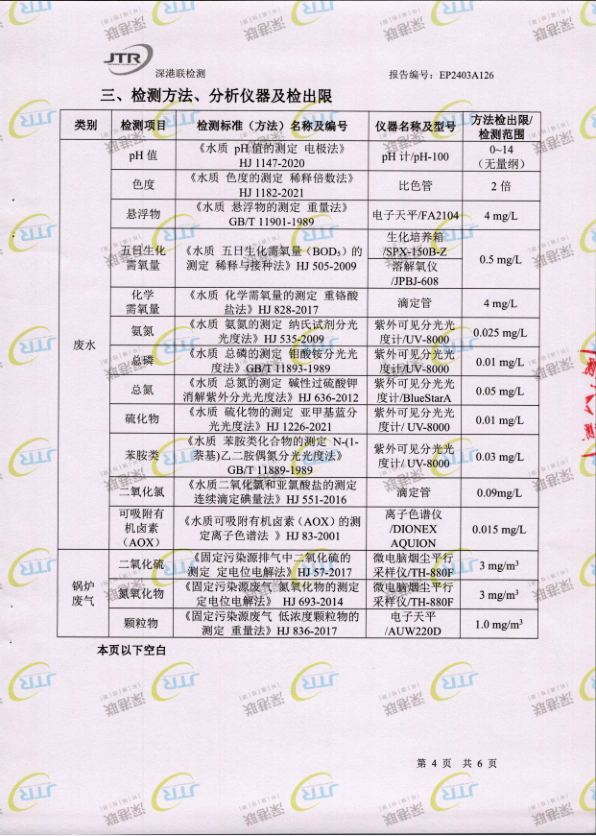 JTR
深港联检测
报告编号：EP2403A126
三、检测方法、分析仪器及检出限
类别 检测项目 检测标准（方法）名称及编号 仪器名称及型号 方法检出限/
检测范围
废水
pH 值 《水质 pH 值的测定 电极法》
HJ 1147-2020
pH 计/pH-100
0~14
（无量纲）
色度
《水质 色度的测定 稀释倍数法》
HJ 1182-2021
比色管
2 倍
悬浮物
《水质 悬浮物的测定 重量法》
GB/T 11901-1989
电子天平/FA2104
4 mg/L
五日生化
需氧量
《水质 五日生化需氧量（BOD₅）的
测定 稀释与接种法》HJ 505-2009
生化培养箱
/SPX-150B-Z
溶解氧仪
/JPBJ-608
0.5 mg/L
化学
需氧量
《水质 化学需氧量的测定 重铬酸
盐法》HJ 828-2017
滴定管
4 mg/L
氨氮
《水质 氨氮的测定 纳氏试剂分光
光度法》HJ 535-2009
紫外可见分光光
度计/UV-8000
0.025 mg/L
总磷
《水质 总磷的测定 钼酸铵分光光
度法》GB/T 11893-1989
紫外可见分光光
度计/UV-8000
0.01 mg/L
总氮
《水质 总氮的测定 碱性过硫酸钾
消解紫外分光光度法》HJ 636-2012
紫外可见分光光
度计/BlueStarA
0.05 mg/L
硫化物
《水质 硫化物的测定 亚甲基蓝分
光光度法》HJ 1226-2021
紫外可见分光光
度计/ UV-8000
0.01 mg/L
苯胺类
《水质 苯胺类化合物的测定 N-(1-
萘基)乙二胺偶氮分光光度法》
GB/T 11889-1989
紫外可见分光光
度计/ UV-8000
0.03 mg/L
二氧化氯
《水质二氧化氯和亚氯酸盐的测定
连续滴定碘量法》HJ 551-2016
滴定管
0.09mg/L
可吸附有
机卤素
（AOX）
《水质可吸附有机卤素（AOX）的测
定离子色谱法 》HJ 83-2001
离子色谱仪
/DIONEX
AQUION
0.015 mg/L
锅炉
废气
二氧化硫
《固定污染源排气中二氧化硫的
测定 定电位电解法》HJ 57-2017
微电脑烟尘平行
采样仪/TH-880F
3 mg/m³
氮氧化物
《固定污染源废气 氮氧化物的测定
定电位电解法》 HJ 693-2014
微电脑烟尘平行
采样仪/TH-880F
3 mg/m³
颗粒物
《固定污染源废气 低浓度颗粒物的
测定 重量法》HJ 836-2017
电子天平
/AUW220D
1.0 mg/m³
本页以下空白
第 4 页 共 6 页